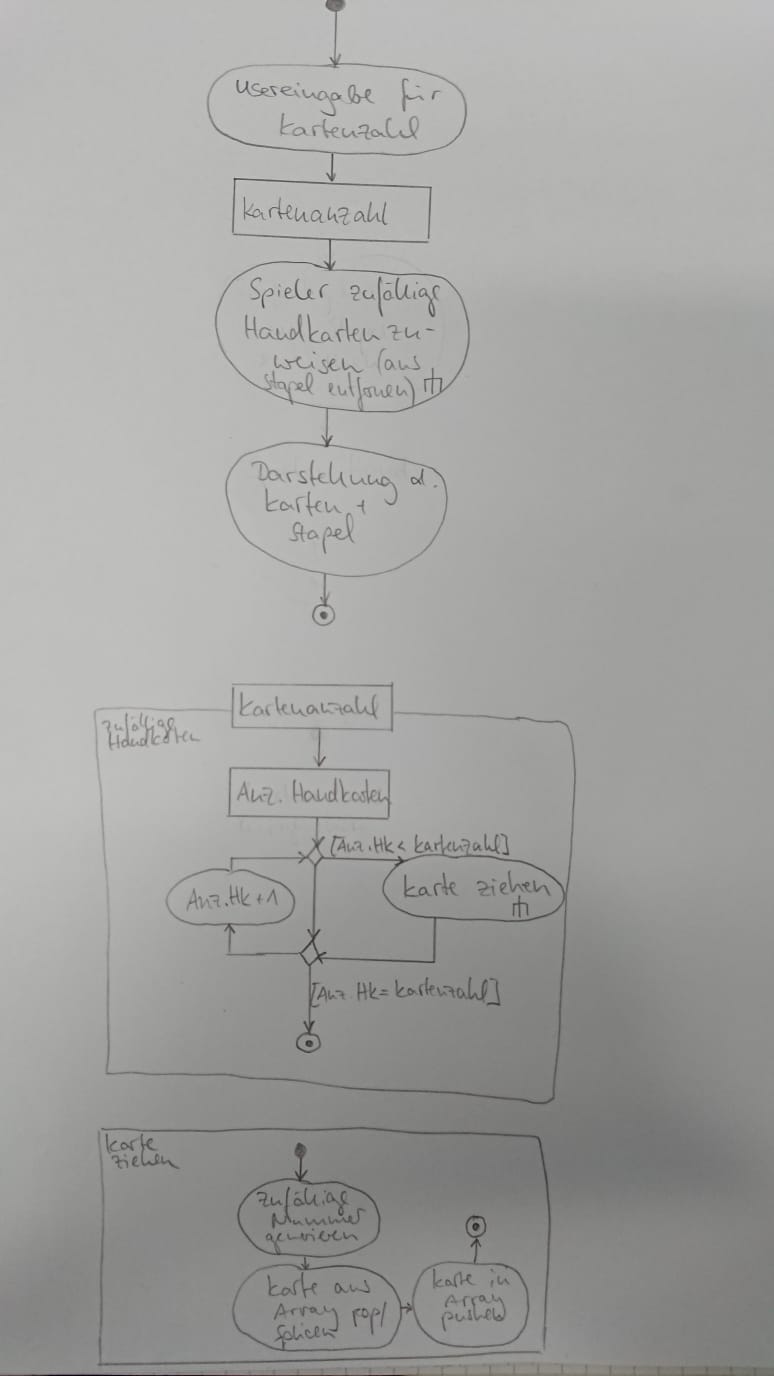 Usereingabe für
Kartenzahl
Kartenanzahl
Spieler zufällige
Handkarten zu-
weisen (aus
Stapel entfernen)
Darstellung d.
Karten +
Stapel
Kartenanzahl
zufällige
Handkarten
Anz. Handkarten
[Anz.Hk < Kartenzahl]
Anz.Hk+1
Karte ziehen
[Anz.Hk=Kartenzahl]
Karte
ziehen
zufällige
Nummer
generieren
Karte aus
Array pop/
splicen
Karte in
Array
pushen